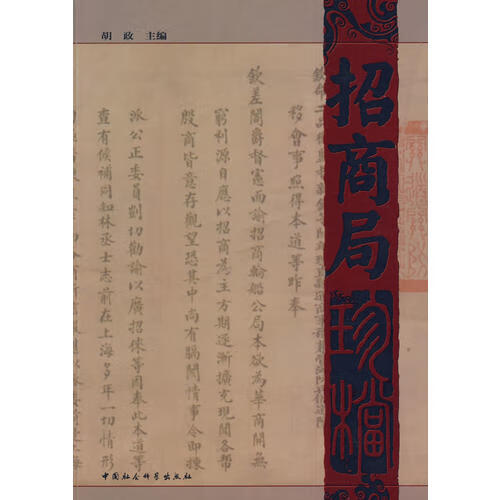 胡 政 主编
招商局
珍檔
移會事照得本道等昨奉
欽差閣爵督憲面諭招商輪船公局本欲為華商開無
窮利源自應以招商為主方期逐漸擴充現聞各幫
殷商皆意存觀望恐其中尚有膈閡情事令即揀
派公正委員剴切勸諭以廣招徠等因奉此本道等
查有候補同知林丞士志前在上海多年一切情形
中国社会科学出版社